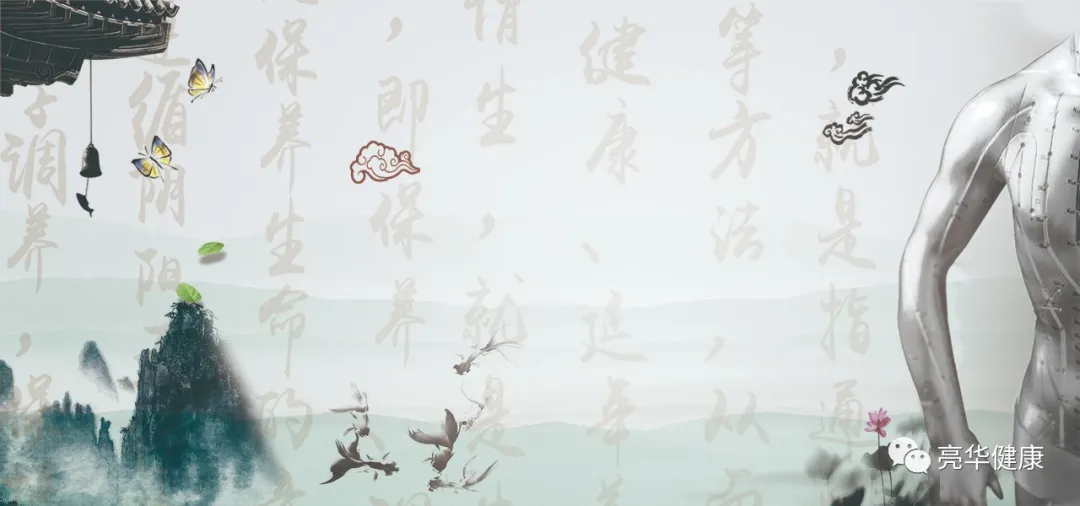 ，就是指通
等方法，从
健康、延年
生，就是
，即保养
保养生命的
循阴阳
调养，保
亮华健康